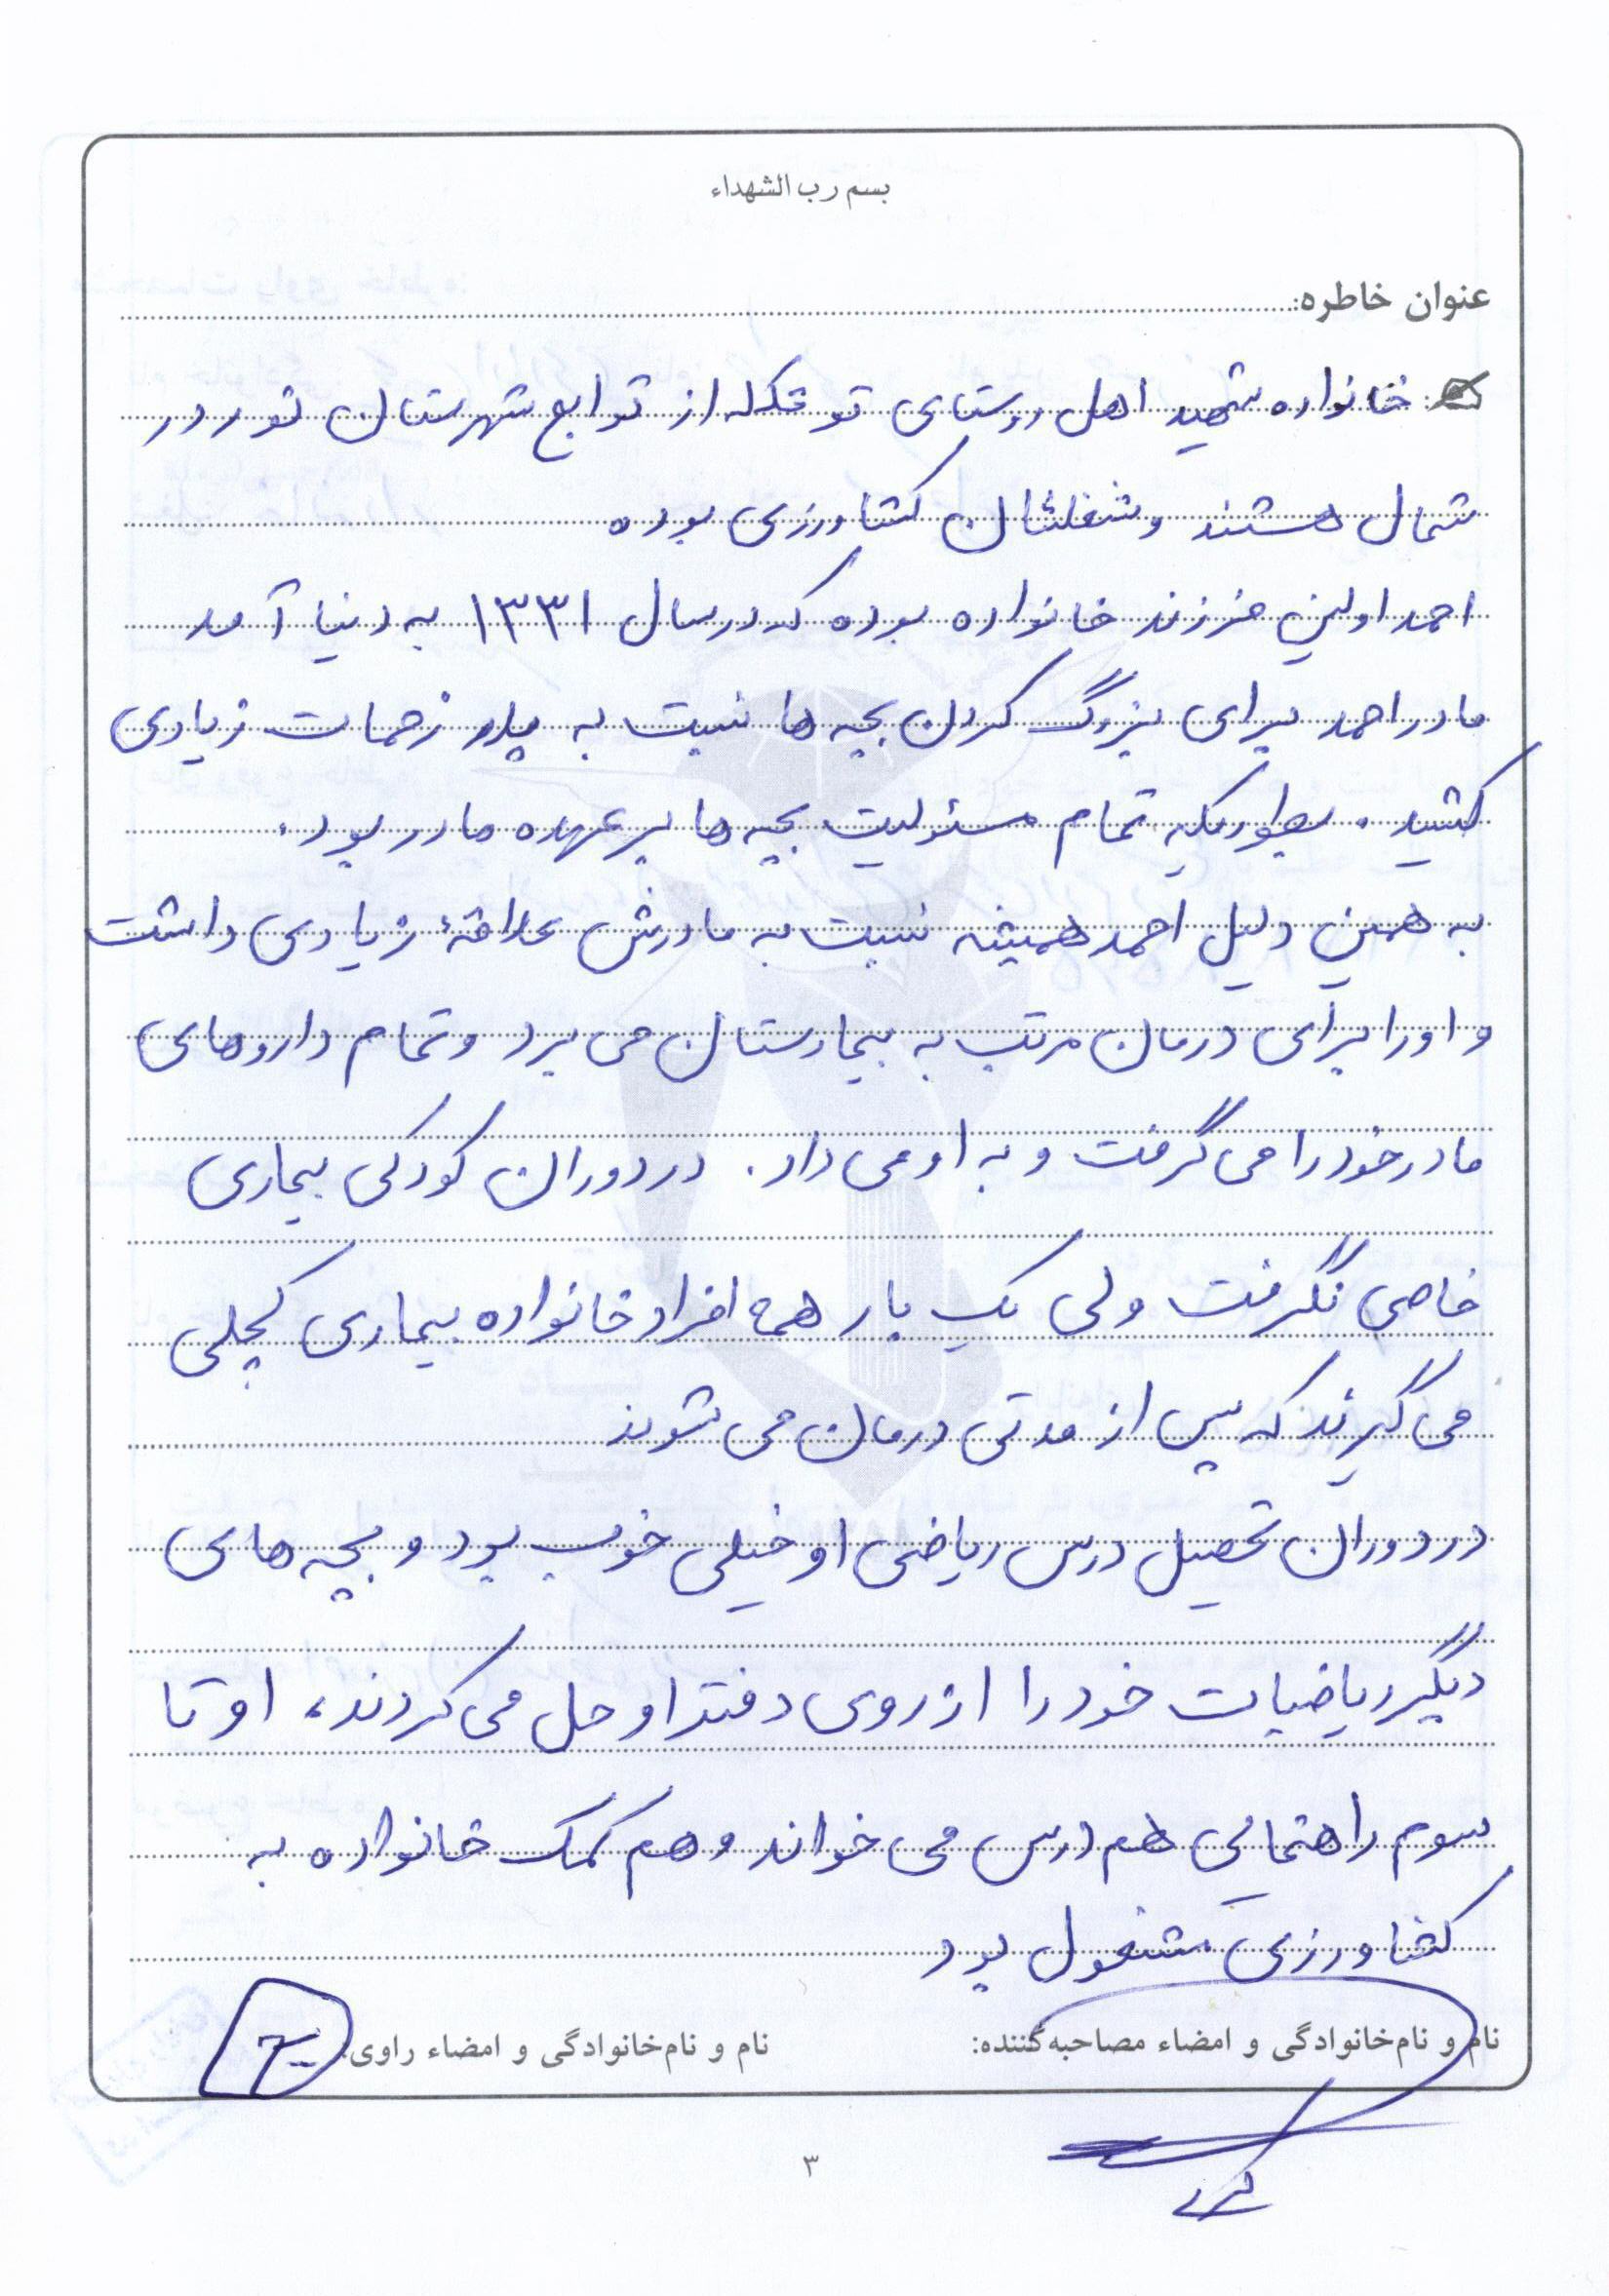 بسم رب الشهداء
عنوان خاطره:
خانواده شهید اهل روستای از توابع شهرستان نور در
شمال هستند و شغلشان کشاورزی بوده
احمد اولین فرزند خانواده بوده که در سال ۱۳۳۱ به دنیا آمد
مادر احمد برای بزرگ کردن بچه ها نسبت به پدر زحمات زیادی
کشید. بطوریکه تمام مسئولیت بچه ها بر عهده مادر بود.
به همین دلیل احمد همیشه نسبت به مادرش علاقۀ زیادی داشت
و او را برای درمان مرتب به بیمارستان می برد و تمام داروهای
مادر خود را می گرفت و به او می داد. در دوران کودکی بیماری
خاصی نگرفت ولی یک بار همه افراد خانواده بیماری کچلی
می گیرند که پس از مدتی درمان می شوند
در دوران تحصیل درس ریاضی او خیلی خوب بود و بچه های
دیگر ریاضیات خود را از روی دفتر او حل می کردند، او تا
سوم راهنمایی هم درس می خواند و هم کمک خانواده به
کشاورزی مشغول بود
نام و نام‌خانوادگی و امضاء مصاحبه‌کننده:
نام و نام‌خانوادگی و امضاء راوی:
۳